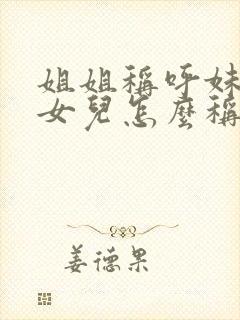 姐姐稱呼妹
女兒怎麼稱
姜德果